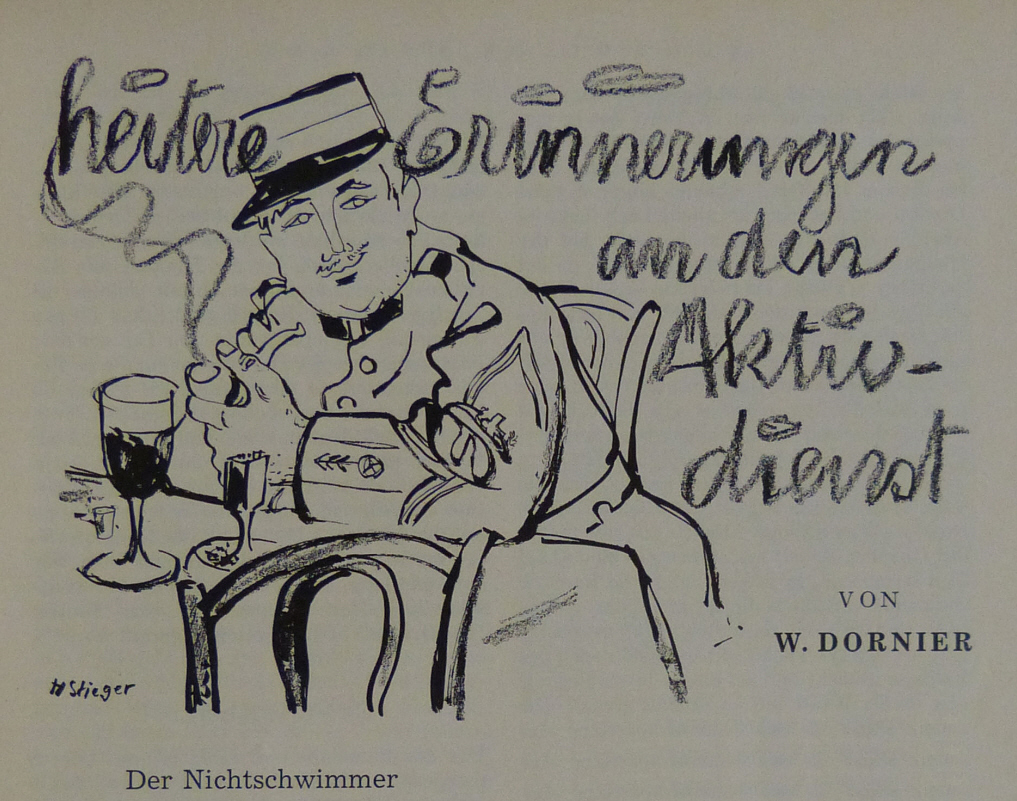 heitere Erinnerungen
an den
Aktiv-
dienst
VON
W. DORNIER
H Stieger
Der Nichtschwimmer